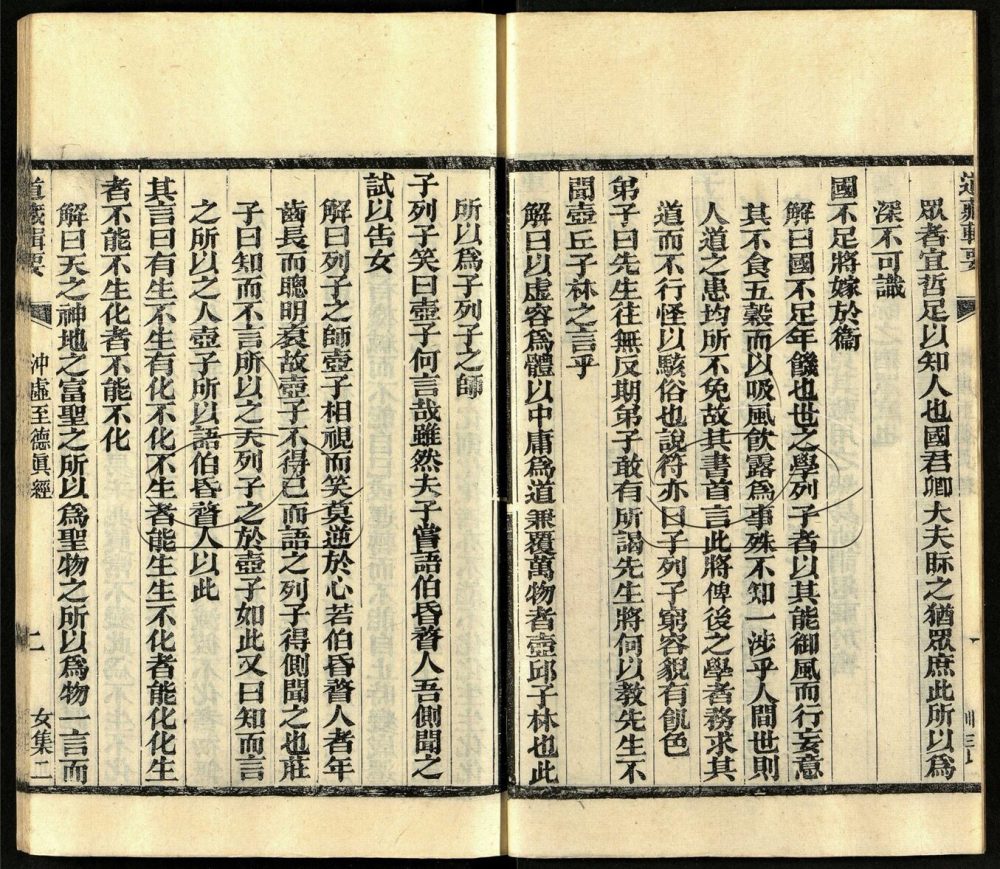 道藏輯要
眾者宜哲足以知人也國君卿大夫眎之猶眾庶此所以為
深不可識
國不足將嫁於衞
解曰國不足年饑也世之學列子者以其能御風而行妄意
其不食五穀而以吸風飲露為事殊不知一涉乎人間世則
人道之患均所不免故其書首言此將俾後之學者務求其
道而不行怪以駭俗也說符亦曰子列子窮容貌有飢色
弟子曰先生往無反期弟子敢有所謁先生將何以教先生不
聞壺丘子林之言乎
解曰以虛容為體以中庸為道兼覆萬物者壺邱子林也此
所以為子列子之師
子列子笑曰壺子何言哉雖然夫子嘗語伯昏瞀人吾側聞之
試以告女
解曰列子之師壺子相視而笑莫逆於心若伯昏瞀人者年
齒長而聰明衰故壺子不得已而語之列子得側聞之也莊
子曰知而不言所以之天列子之於壺子如此又曰知而言
之所以之人壺子所以語伯昏瞀人以此
其言曰有生不生有化不化不生者能生生不化者能化化生
者不能不生化者不能不化
解曰天之神地之富聖之所以為聖物之所以為物一言而
道藏輯要 沖虛至德眞經 二 女集二